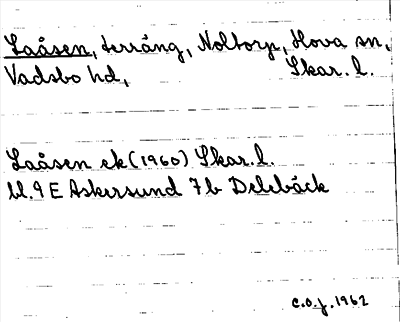 Laåsen, terräng, Noltorp, Hova sn,
Vadsbo hd, Skar. l.
Laåsen ek (1960) Skar. l.
bl. 9 E Askersund 7b Delebäck
c.o.j. 1962